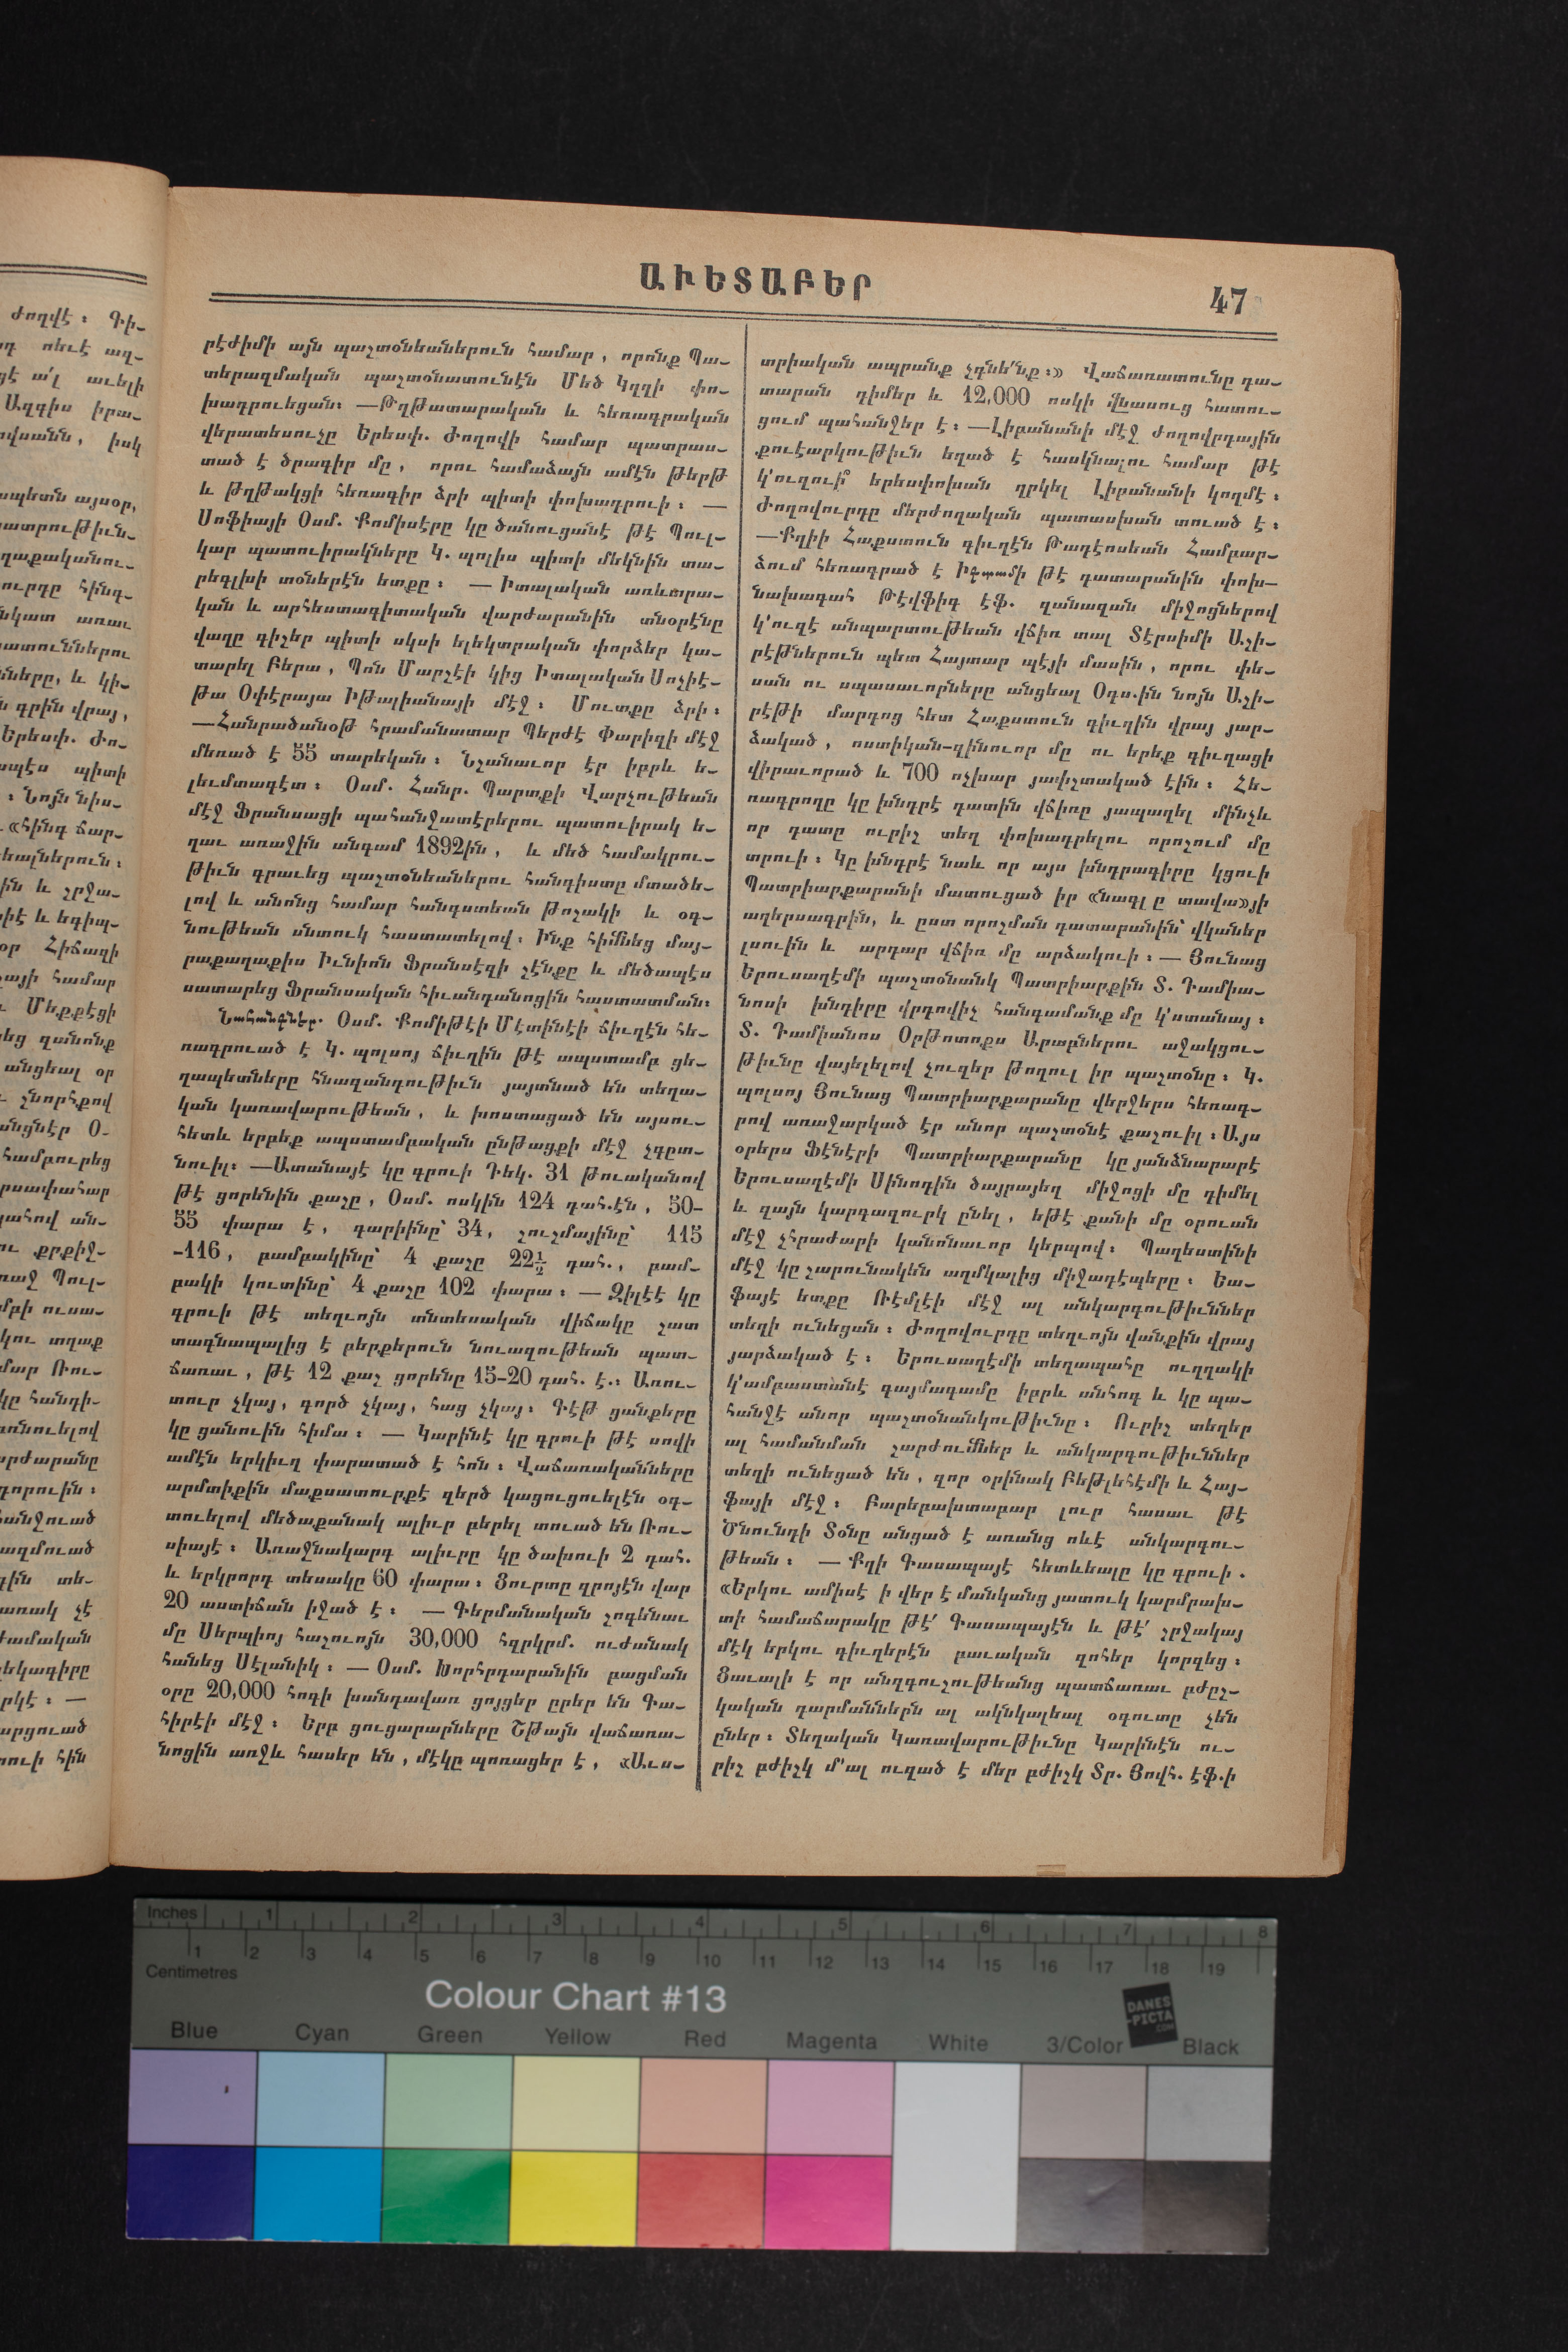 ԱՒԵՏԱԲԵՐ
47
րէժիմի այն պաշտօնեաներուն համար, որոնք Պա-
տերազմական պաշտօնատունէն Մեծ Կղզի փո-
խադրուեցան։ —Թղթատարական և հեռագրական
վերատեսուչը Երեսփ. Ժողովի համար պատրաս-
տած է ծրագիր մը, որու համաձայն ամէն թերթ
և թղթակցի հեռագիր ձրի պիտի փոխադրուի։ —
Սոֆիայի Օսմ. Քոմիսէրը կը ծանուցանէ թէ Պուլ-
կար պատուիրակները Կ. պոլիս պիտի մեկնին տա-
րեգլխի տօներէն ետքը։ — Իտալական առևտրա-
կան և արհեստագիտական վարժարանին տնօրէնը
վաղը գիշեր պիտի սկսի ելեկտրական փորձեր կա-
տարել Բերա, Պոն Մարշէի կից Իտալական Սոչիէ-
թա Օփէրայա Իթալիանայի մէջ։ Մուտքը ձրի։
—Հանրածանօթ հրամանատար Պերժէ Փարիզի մէջ
մեռած է 55 տարեկան։ Նշանաւոր էր իբրև ե-
լեւմտագէտ։ Օսմ. Հանր. Պարտքի Վարչութեան
մէջ Ֆրանսացի պահանջատէրերու պատուիրակ ե-
ղաւ առաջին անգամ 1892ին, և մեծ համակրու-
թիւն գրաւեց պաշտօնեաներու հանգիստը մտածե-
լով և անոնց համար հանգստեան թոշակի և օգ-
նութեան սնտուկ հաստատելով։ Ինք հիմնեց մայ-
րաքաղաքիս Իւնիոն Ֆրանսէզի շէնքը և մեծապէս
սատարեց Ֆրանսական հիւանդանոցին հաստատման։
Նահանգներ. Օսմ. Քոմիթէի Մէտինէի ճիւղէն հե-
ռագրուած է Կ. պոլսոյ ճիւղին թէ ապստամբ ցե-
ղապետները հնազանդութիւն յայտնած են տեղա-
կան կառավարութեան, և խոստացած են այսու-
հետև երբեք ապստամբական ընթացքի մէջ չգըտ-
նուիլ։ —Ատանայէ կը գրուի Դեկ. 31 թուականով
թէ ցորենին քաչը, Օսմ. ոսկին 124 դահ.էն, 50-
55 փարա է, գարիինը՝ 34, շուշմայինը՝ 115
-116, բամբակինը՝ 4 քաչը 22½ դահ., բամ-
բակի կուտինը՝ 4 քաչը 102 փարա։ — Զիլէէ կը
գրուի թէ տեղւոյն տնտեսական վիճակը շատ
տագնապալից է բերքերուն նուազութեան պատ-
ճառաւ, թէ 12 քաչ ցորենը 15-20 դահ. է.։ Առու-
տուր չկայ, գործ չկայ, հաց չկայ։ Գէթ ցանքերը
կը ցանուին հիմա։ — Կարինէ կը գրուի թէ սովի
ամէն երկիւղ փարատած է հոն։ Վաճառականները
արմտիքին մաքսատուրքէ զերծ կացուցուելէն օգ-
տուելով մեծաքանակ ալիւր բերել տուած են Ռու-
սիայէ։ Առաջնակարգ ալիւրը կը ծախուի 2 դահ.
և երկրորդ տեսակը 60 փարա։ Ցուրտը զրոյէն վար
20 աստիճան իջած է։ — Գերմանական շոգենաւ
մը Սերպիոյ հաշուոյն 30,000 հզրկրմ. ուժանակ
հանեց Սէլանիկ։ — Օսմ. Խորհրդարանին բացման
օրը 20,000 հոգի խանդավառ ցոյցեր ըրեր են Գա-
հիրէի մէջ։ Երբ ցուցարարները Շթայն վաճառա-
նոցին առջև հասեր են, մէկը պոռացեր է, «Աւս-
տրիական ապրանք չգնե՛նք։» Վաճառատունը դա-
տարան դիմեր և 12,000 ոսկի վնասուց հատու-
ցում պահանջեր է։ —Լիբանանի մէջ ժողովրդային
քուէարկութիւն եղած է հասկնալու համար թէ
կ՚ուզուի՞ երեսփոխան ղրկել Լիբանանի կողմէ։
Ժողովուրդը մերժողական պատասխան տուած է։
—Քղիի Հաքստուն գիւղէն Թադէոսեան Համբար-
ձում հեռագրած է Իքտամի թէ դատարանին փոխ-
նախագահ Թէվֆիգ էֆ. զանազան միջոցներով
կ՚ուզէ անպարտութեան վճիռ տալ Տէրսիմի Աշի-
րէթներուն պետ Հայտար պէյի մասին, որու փե-
սան ու սպասաւորները անցեալ Օգս.ին նոյն Աշի-
րէթի մարդոց հետ Հաքստուն գիւղին վրայ յար-
ձակած, ոստիկան-զինուոր մը ու երեք գիւղացի
վիրաւորած և 700 ոչխար յափշտակած էին։ Հե-
ռագրողը կը խնդրէ դատին վճիռը յապաղել մինչև
որ դատը ուրիշ տեղ փոխադրելու որոշում մը
տրուի։ Կը խնդրէ նաև որ այս խնդրագիրը կցուի
Պատրիարքարանի մատուցած իր «նագլ ը տավա»յի
աղերսագրին, և ըստ որոշման դատարանին՝ վկաներ
լսուին և արդար վճիռ մը արձակուի։ — Յունաց
Երուսաղէմի պաշտօնանկ Պատրիարքին Տ. Դամիա-
նոսի խնդիրը վրդովիչ հանգամանք մը կ՚ստանայ։
Տ. Դամիանոս Օրթոտոքս Արաբներու աջակցու-
թիւնը վայելելով չուզեր թողուլ իր պաշտօնը։ Կ.
պոլսոյ Յունաց Պատրիարքարանը վերջերս հեռագ-
րով առաջարկած էր անոր պաշտօնէ քաշուիլ։ Այս
օրերս Ֆէնէրի Պատրիարքարանը կը յանձնարարէ
Երուսաղէմի Սինոդին ծայրայեղ միջոցի մը դիմել
և զայն կարգազուրկ ընել, եթէ քանի մը օրուան
մէջ չհրաժարի կանոնաւոր կերպով։ Պաղեստինի
մէջ կը շարունակեն աղմկալից միջադէպերը։ Եա-
ֆայէ ետքը Ռէմլէի մէջ ալ անկարգութիւններ
տեղի ունեցան։ Ժողովուրդը տեղւոյն վանքին վրայ
յարձակած է։ Երուսաղէմի տեղապահը ուղղակի
կ՚ամբաստանէ գայմագամը իբրև անհոգ և կը պա-
հանջէ անոր պաշտօնանկութիւնը։ Ուրիշ տեղեր
ալ համանման շարժումներ և անկարգութիւններ
տեղի ունեցած են, զոր օրինակ Բեթլեհէմի և Հայ-
ֆայի մէջ։ Բարեբախտաբար լուր հասաւ թէ
Ծնունդի Տօնը անցած է առանց ոևէ անկարգու-
թեան։ — Քղի Գասապայէ հետևեալը կը գրուի.
«Երկու ամիսէ ի վեր է մանկանց յատուկ կարմրախ-
տի համաճարակը թէ՛ Գասապայէն և թէ՛ շրջակայ
մէկ երկու գիւղերէն բաւական զոհեր կորզեց։
Ցաւալի է որ անզգուշութեանց պատճառաւ բժըշ-
կական դարմաններն ալ ակնկալեալ օգուտը չեն
ըներ։ Տեղական Կառավարութիւնը Կարինէն ու-
րիշ բժիշկ մ՚ալ ուզած է մեր բժիշկ Տր. Յովհ. էֆ.ի
ժողվէ։ Գի-
աւելի
Ազգիս իրա-
իսկ
այսօր,
հինգ-
առաւ
և կի-
գրին վրայ,
Երեսփ. Ժո-
պիտի
Նոյն նիս-
«հինգ ճար-
և շրջա-
և եգիպ-
Հիճազի
համար
Մեքքէցի
զանոնք
անցեալ օր
շնորհքով
Օ-
համբուրեց
ան-
քրքիջ-
Պուլ-
ուսա-
տղաք
Ռու-
կը հանդի-
տե-
չէ
հին
Inches 1 2 3 4 5 6 7 8
1 2 3 4 5 6 7 8 9 10 11 12 13 14 15 16 17 18 19
Centimetres
Colour Chart #13
DANES
-PICTA
.COM
Blue Cyan Green Yellow Red Magenta White 3/Color Black